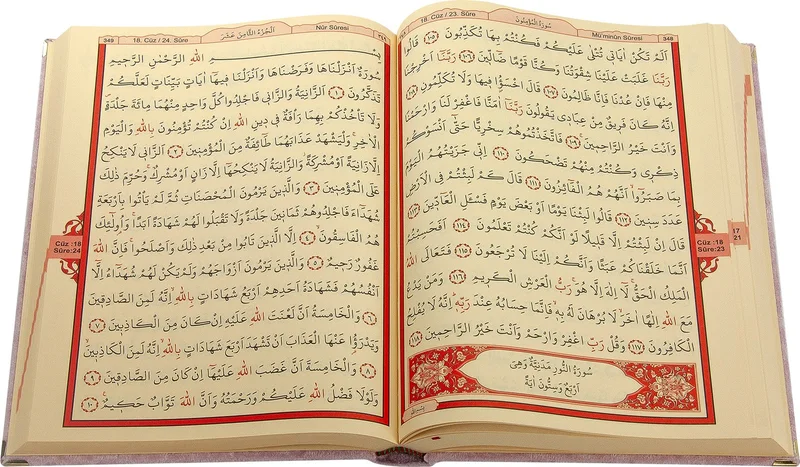 348 Mü'minûn Sûresi سُورَةُ الْمُؤْمِنُونَ 18. Cüz / 23. Sûre
اَلَمْ تَكُنْ اٰيَاتٖي تُتْلٰى عَلَيْكُمْ فَكُنْتُمْ بِهَا تُكَذِّبُونَ ﴿١٠٥﴾ قَالُوا
رَبَّنَا غَلَبَتْ عَلَيْنَا شِقْوَتُنَا وَكُنَّا قَوْمًا ضَٓالّٖينَ ﴿١٠٦﴾ رَبَّنَٓا اَخْرِجْنَا
مِنْهَا فَاِنْ عُدْنَا فَاِنَّا ظَالِمُونَ ﴿١٠٧﴾ قَالَ اخْسَؤُ۫ا فٖيهَا وَلَا تُكَلِّمُونِ ﴿١٠٨﴾
اِنَّهُ كَانَ فَرٖيقٌ مِنْ عِبَادٖي يَقُولُونَ رَبَّنَٓا اٰمَنَّا فَاغْفِرْ لَنَا وَارْحَمْنَا
وَاَنْتَ خَيْرُ الرَّاحِمٖينَ ﴿١٠٩﴾ فَاتَّخَذْتُمُوهُمْ سِخْرِيًّا حَتّٰٓى اَنْسَوْكُمْ
ذِكْرٖي وَكُنْتُمْ مِنْهُمْ تَضْحَكُونَ ﴿١١٠﴾ اِنّٖي جَزَيْتُهُمُ الْيَوْمَ
بِمَا صَبَرُٓوا اَنَّهُمْ هُمُ الْفَٓائِزُونَ ﴿١١١﴾ قَالَ كَمْ لَبِثْتُمْ فِي الْاَرْضِ
عَدَدَ سِنٖينَ ﴿١١٢﴾ قَالُوا لَبِثْنَا يَوْمًا اَوْ بَعْضَ يَوْمٍ فَسْـَٔلِ الْعَٓادّٖينَ ﴿١١٣﴾
قَالَ اِنْ لَبِثْتُمْ اِلَّا قَلٖيلًا لَوْ اَنَّكُمْ كُنْتُمْ تَعْلَمُونَ ﴿١١٤﴾ اَفَحَسِبْتُمْ
اَنَّمَا خَلَقْنَاكُمْ عَبَثًا وَاَنَّكُمْ اِلَيْنَا لَا تُرْجَعُونَ ﴿١١٥﴾ فَتَعَالَى اللّٰهُ
الْمَلِكُ الْحَقُّ لَٓا اِلٰهَ اِلَّا هُوَ رَبُّ الْعَرْشِ الْكَرٖيمِ ﴿١١٦﴾ وَمَنْ يَدْعُ
مَعَ اللّٰهِ اِلٰهًا اٰخَرَ لَا بُرْهَانَ لَهُ بِهٖ فَاِنَّمَا حِسَابُهُ عِنْدَ رَبِّهٖ اِنَّهُ لَا يُفْلِحُ
الْكَافِرُونَ ﴿١١٧﴾ وَقُلْ رَبِّ اغْفِرْ وَارْحَمْ وَاَنْتَ خَيْرُ الرَّاحِمٖينَ ﴿١١٨﴾
سُورَةُ النُّورِ مَدَنِيَّةٌ وَهِيَ
اَرْبَعٌ وَسِتُّونَ اٰيَةً
Cüz :18
Sûre:23
17
21
349 18. Cüz / 24. Sûre اَلْجُزْءُ الثَّامِنَ عَشَرَ Nûr Sûresi
بِسْمِ اللّٰهِ الرَّحْمٰنِ الرَّحٖيمِ
سُورَةٌ اَنْزَلْنَاهَا وَفَرَضْنَاهَا وَاَنْزَلْنَا فٖيهَٓا اٰيَاتٍ بَيِّنَاتٍ لَعَلَّكُمْ
تَذَكَّرُونَ ﴿١﴾ اَلزَّانِيَةُ وَالزَّانٖي فَاجْلِدُوا كُلَّ وَاحِدٍ مِنْهُمَا مِائَةَ جَلْدَةٍ
وَلَا تَأْخُذْكُمْ بِهِمَا رَأْفَةٌ فٖي دٖينِ اللّٰهِ اِنْ كُنْتُمْ تُؤْمِنُونَ بِاللّٰهِ وَالْيَوْمِ
الْاٰخِرِ وَلْيَشْهَدْ عَذَابَهُمَا طَٓائِفَةٌ مِنَ الْمُؤْمِنٖينَ ﴿٢﴾ اَلزَّانٖي لَا يَنْكِحُ
اِلَّا زَانِيَةً اَوْ مُشْرِكَةً وَالزَّانِيَةُ لَا يَنْكِحُهَٓا اِلَّا زَانٍ اَوْ مُشْرِكٌ وَحُرِّمَ ذٰلِكَ
عَلَى الْمُؤْمِنٖينَ ﴿٣﴾ وَالَّذٖينَ يَرْمُونَ الْمُحْصَنَاتِ ثُمَّ لَمْ يَأْتُوا بِاَرْبَعَةِ
شُهَدَٓاءَ فَاجْلِدُوهُمْ ثَمَانٖينَ جَلْدَةً وَلَا تَقْبَلُوا لَهُمْ شَهَادَةً اَبَدًا وَاُو۬لٰٓئِكَ
هُمُ الْفَاسِقُونَ ﴿٤﴾ اِلَّا الَّذٖينَ تَابُوا مِنْ بَعْدِ ذٰلِكَ وَاَصْلَحُوا فَاِنَّ اللّٰهَ
غَفُورٌ رَحٖيمٌ ﴿٥﴾ وَالَّذٖينَ يَرْمُونَ اَزْوَاجَهُمْ وَلَمْ يَكُنْ لَهُمْ شُهَدَٓاءُ اِلَّٓا
اَنْفُسُهُمْ فَشَهَادَةُ اَحَدِهِمْ اَرْبَعُ شَهَادَاتٍ بِاللّٰهِ اِنَّهُ لَمِنَ الصَّادِقٖينَ
﴿٦﴾ وَالْخَامِسَةُ اَنَّ لَعْنَتَ اللّٰهِ عَلَيْهِ اِنْ كَانَ مِنَ الْكَاذِبٖينَ ﴿٧﴾
وَيَدْرَؤُ۬ا عَنْهَا الْعَذَابَ اَنْ تَشْهَدَ اَرْبَعَ شَهَادَاتٍ بِاللّٰهِ اِنَّهُ لَمِنَ الْكَاذِبٖينَ
﴿٨﴾ وَالْخَامِسَةَ اَنَّ غَضَبَ اللّٰهِ عَلَيْهَٓا اِنْ كَانَ مِنَ الصَّادِقٖينَ ﴿٩﴾
وَلَوْلَا فَضْلُ اللّٰهِ عَلَيْكُمْ وَرَحْمَتُهُ وَاَنَّ اللّٰهَ تَوَّابٌ حَكٖيمٌ ﴿١٠﴾
Cüz :18
Sûre:24